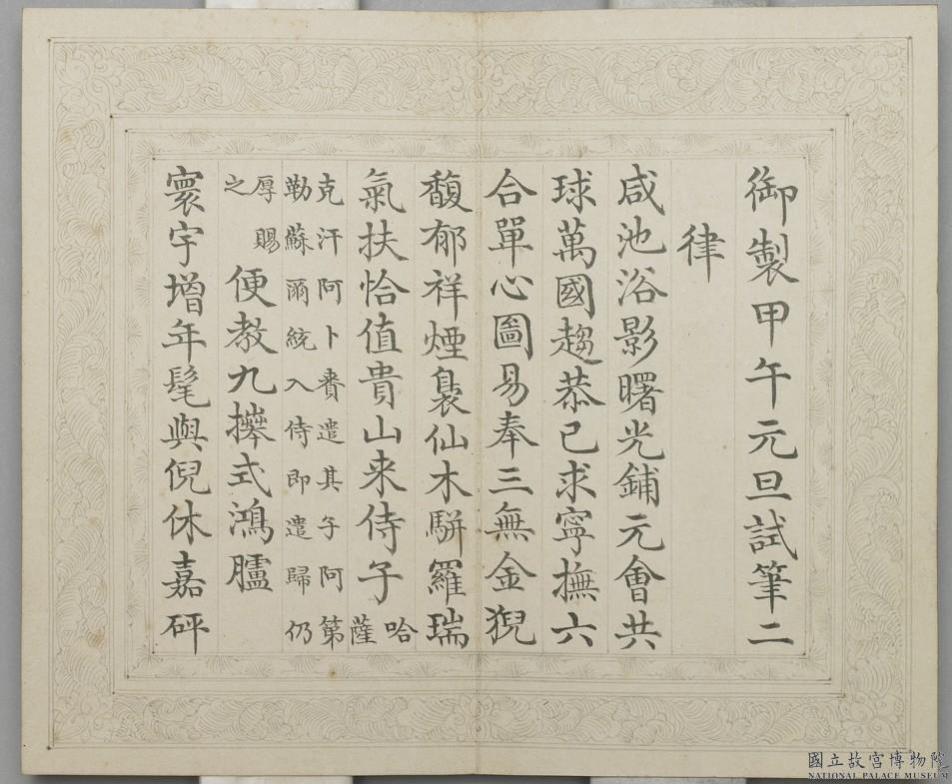 御製甲午元旦試筆二
律
咸池浴影曙光鋪元會共
球萬國趨恭己求寧撫六
合單心圖易奉三無金猊
馥郁祥煙裊仙木駢羅瑞
氣扶恰值貴山来侍子哈薩
克汗阿卜賚遣其子阿第
勒蘇爾統入侍即遣歸仍
厚賜之便教九𢷎式鴻臚
寰宇增年髦與倪休嘉砰
國立故宮博物院
NATIONAL PALACE MUSEUM